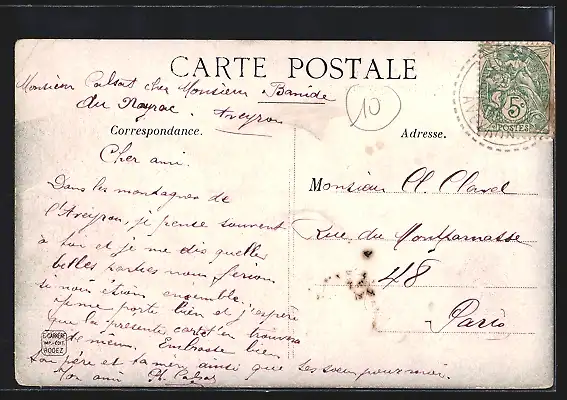 CARTE POSTALE
Monsieur Calsat chez Monsieur Banide
du Nayrac. Aveyron
10
5c
POSTES
Correspondance.
Adresse.
Cher ami.
Dans les montagnes de
l'Aveyron, je pense souvent
à toi et je me dis quelles
belles parties nous ferions
si nous étions ensemble. j'espère
que la présente carte en trouvera
de même. Embrasse bien
ton père et ta mère ainsi que tes soeurs pour moi.
Ton ami Calsat
Monsieur Cl. Clavel
Rue du Montparnasse
48
Paris
E. CARRERE
RODEZ